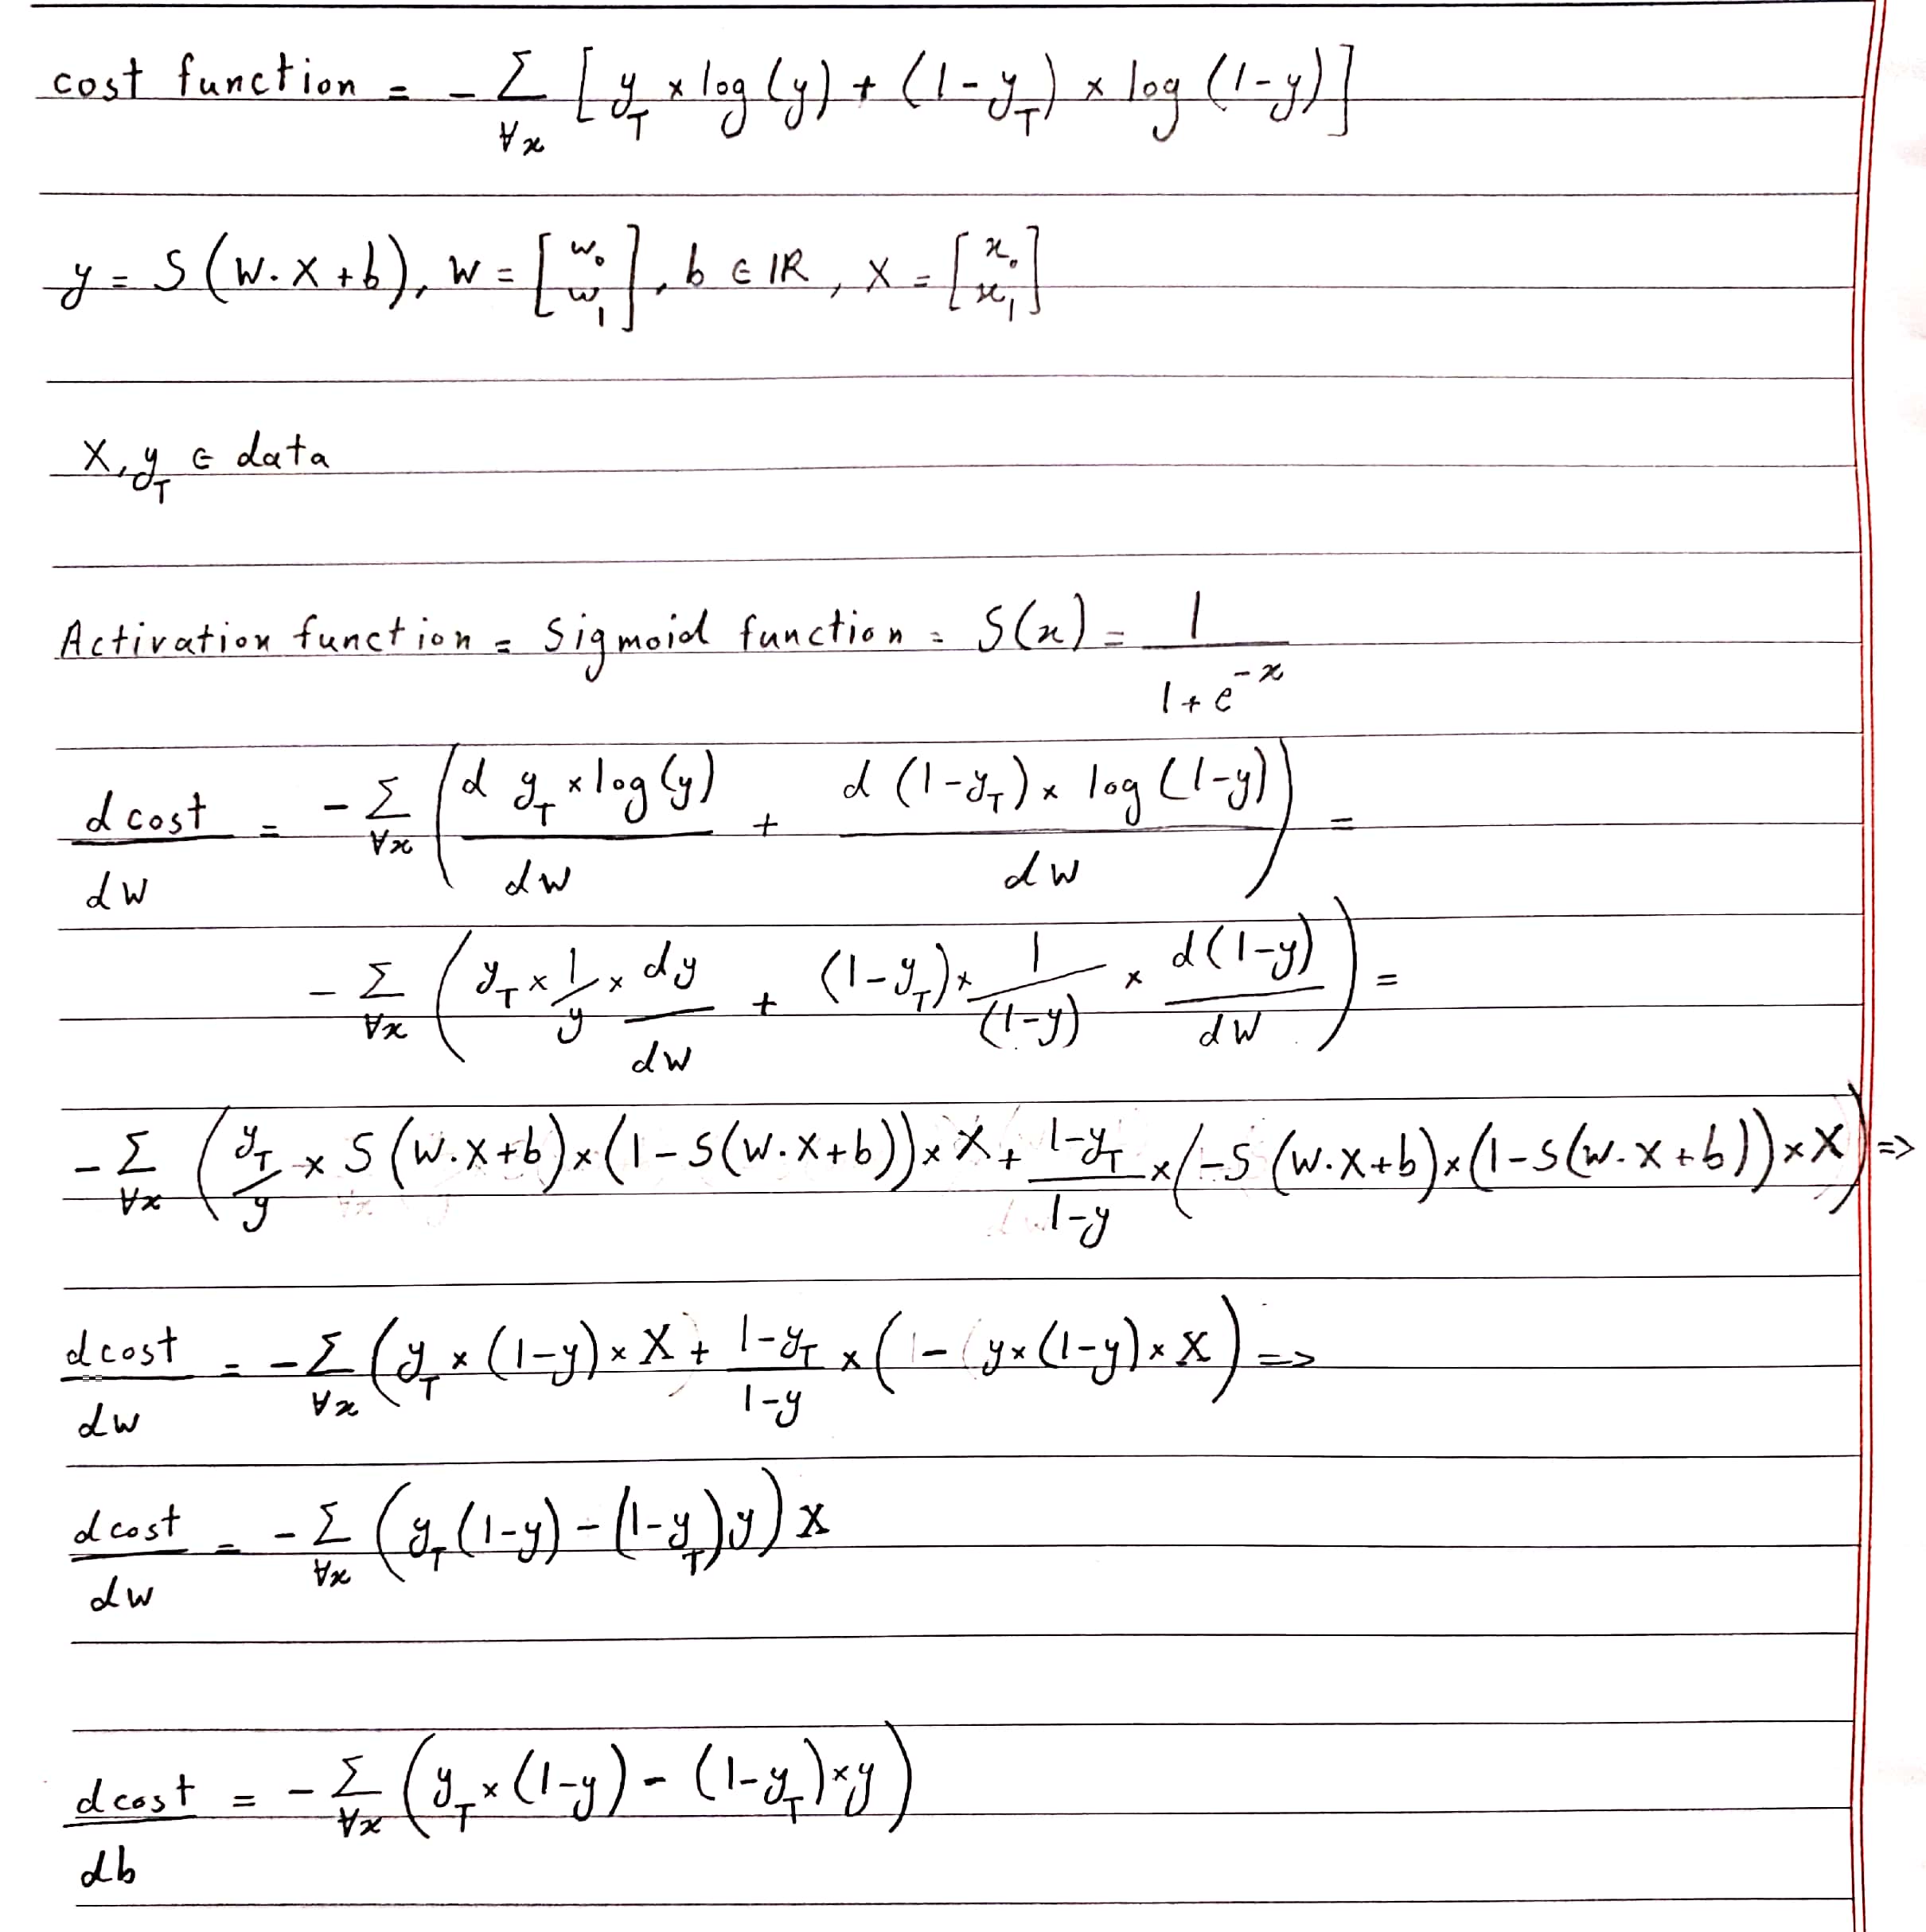 cost function = - Σ_{∀x} [ y_T × log(y) + (1-y_T) × log(1-y) ]
y = S(W.X+b), W = [w_0 w_1], b ∈ IR, X = [x_0 x_1]
X, y_T ∈ data
Activation function = Sigmoid function = S(x) = 1 / (1+e^{-x})
d cost / dW = - Σ_{∀x} ( d y_T × log(y) / dW + d (1-y_T) × log(1-y) / dW ) =
- Σ_{∀x} ( y_T × 1/y × dy/dW + (1-y_T) × 1/(1-y) × d(1-y)/dW ) =
- Σ_{∀x} ( y_T/y × S(W.X+b) × (1-S(W.X+b)) × X + (1-y_T)/(1-y) × (-S(W.X+b) × (1-S(W.X+b)) × X ) =>
d cost / dW = - Σ_{∀x} ( y_T × (1-y) × X + (1-y_T)/(1-y) × ( - y × (1-y) × X ) =>
d cost / dW = - Σ_{∀x} ( y_T (1-y) - (1-y_T) y ) X
d cost / db = - Σ_{∀x} ( y_T × (1-y) - (1-y_T) × y )